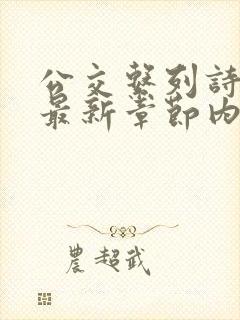 公交系列詩
最新章節內
農超武